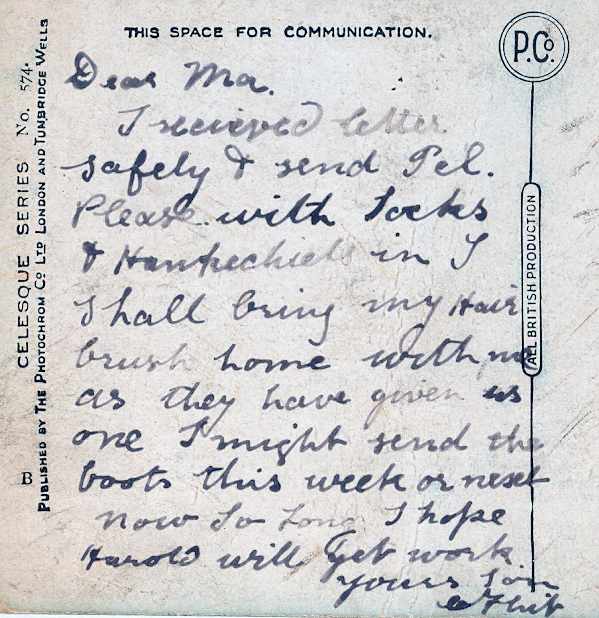 THIS SPACE FOR COMMUNICATION.
P. Co.
CELESQUE SERIES No. 574.
PUBLISHED BY THE PHOTOCHROM CO LTD LONDON AND TUNBRIDGE WELLS
B
ALL BRITISH PRODUCTION
Dear Ma.
I recieved letter
safely & send Pcl.
Please with Socks
& Hankechiefs in I
shall bring my Hair
brush home with me
as they have given us
one I might send the
boots this week or next
now So Long I hope
Harold will get work
yours Son